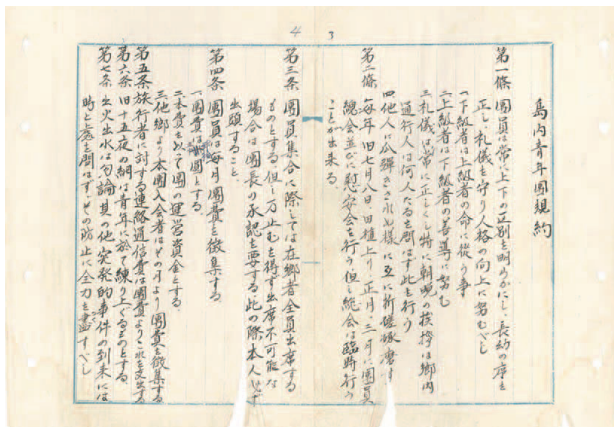 4 3
島内青年團規約
第一條 團員は常に上下の区別を明らかにし、長幼の序を
正し礼儀を守り人格の向上に努むべし
一、下級者は上級者の命に従う事
二、上級者は下級者の善導に努む
三、礼儀は常に正しくし特に朝晩の挨拶は郷内
通行人は何人たるを問はず此を行う
四、他人に後指さされぬ様に互に折磋琢磨す
第二條 毎年旧七月八日田植上り正月三月に團員
總会並びに慰安会を行う但し総会は臨時行う
ことが出来る
第三条 團員集合に際しては在郷者全員出席する
ものとする、但し万止むを得ず出席不可能な
場合は團長の承認を要する此の際本人必ず
出頭すること
第四条 團員は毎月團費を徴集する
一、團費は 圓とする
二、本費を以て團の運営資金とする
三、他郷より本團入会者はその月より團費を徴集する
第五条 旅行者に対する連絡通信費は團費よりこれを支出する
第六条 旧十五夜の綱は青年に於て練り上ぐるものとする
第七条 出火出水は勿論其の他突発的事件の到来には
時と處を問はずその防止に全力を盡すべし